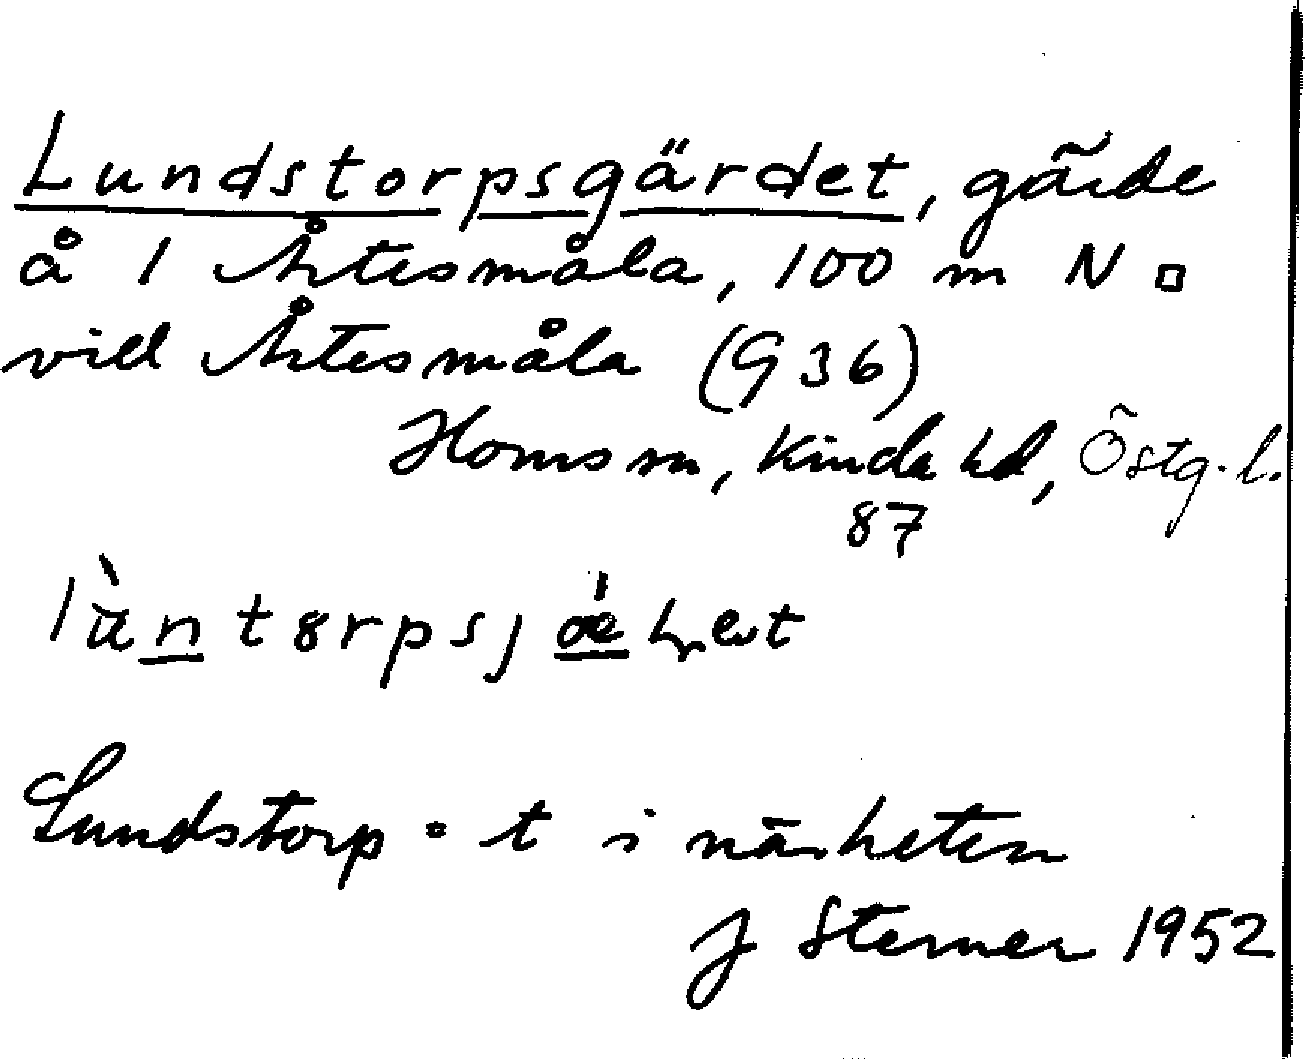 Lundstorpsgärdet, gärde
å 1 Åtesmåla, 100 m N □
vid Åtesmåla (G 36)
Horns sn, Kinda hd, Östg. l.
87
Lundstorp = t i närheten
J Sterner 1952